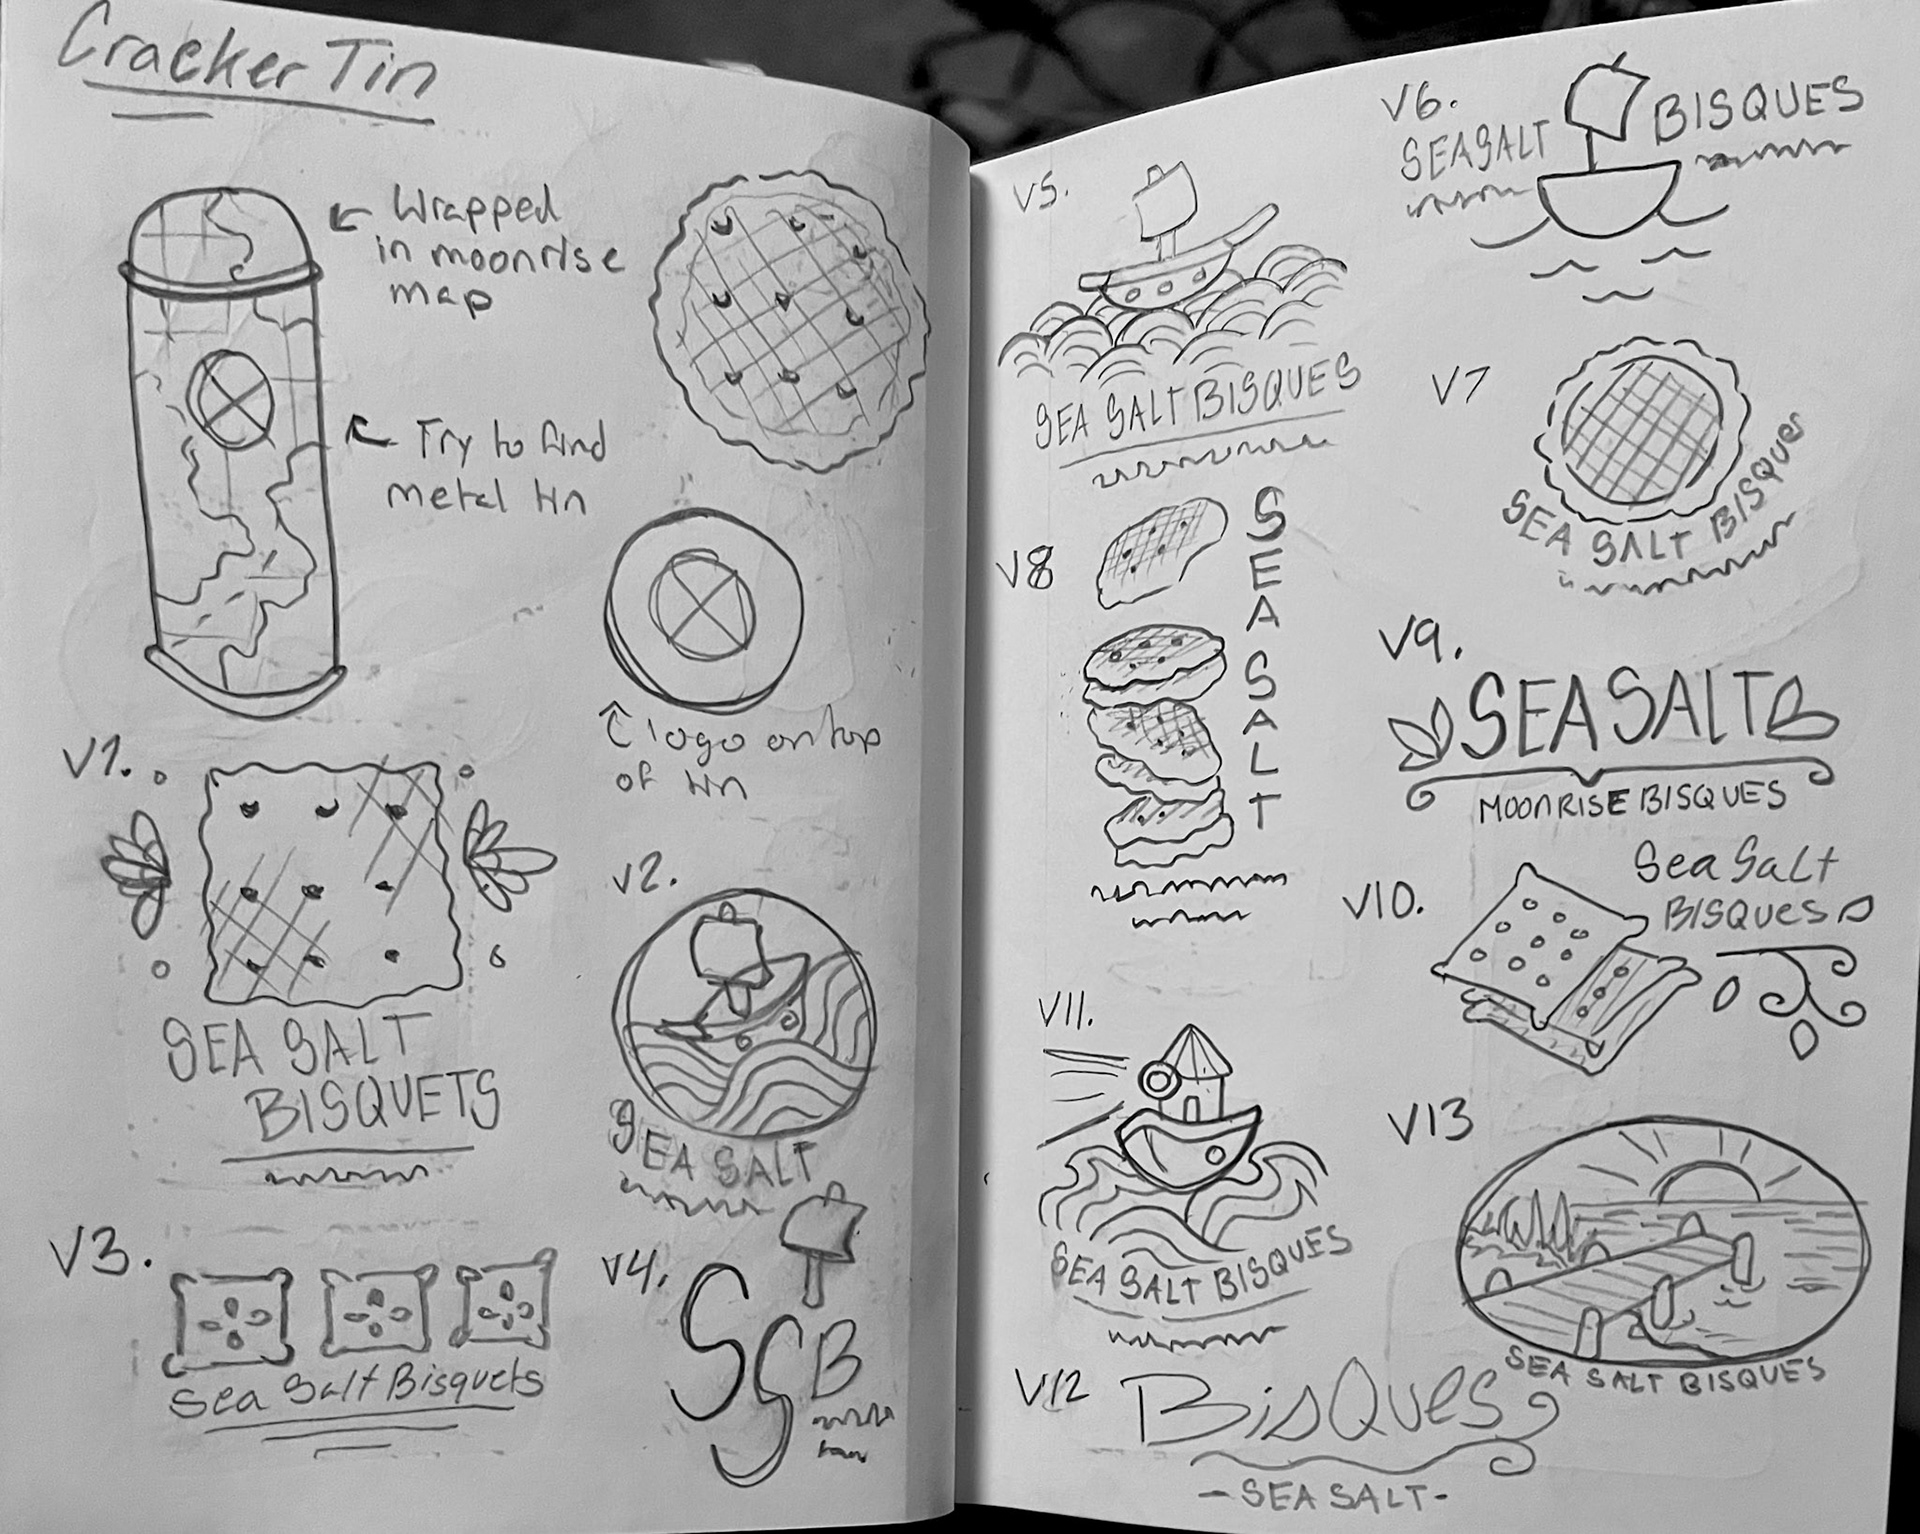 Cracker Tin
Wrapped
in moonrise
map
Try to find
metal tin
logo on top
of tin
V1.
SEA SALT
BISQUETS
V2.
SEA SALT
V3.
Sea Salt Bisquets
V4.
SSB
V5.
SEA SALT BISQUES
V6.
SEASALT BISQUES
V7
SEA SALT BISQUES
V8
SEA SALT
V9.
SEA SALT
MOONRISE BISQUES
V10.
Sea Salt
BISQUES
V11.
SEA SALT BISQUES
V12
BisQues
- SEA SALT -
V13
SEA SALT BISQUES